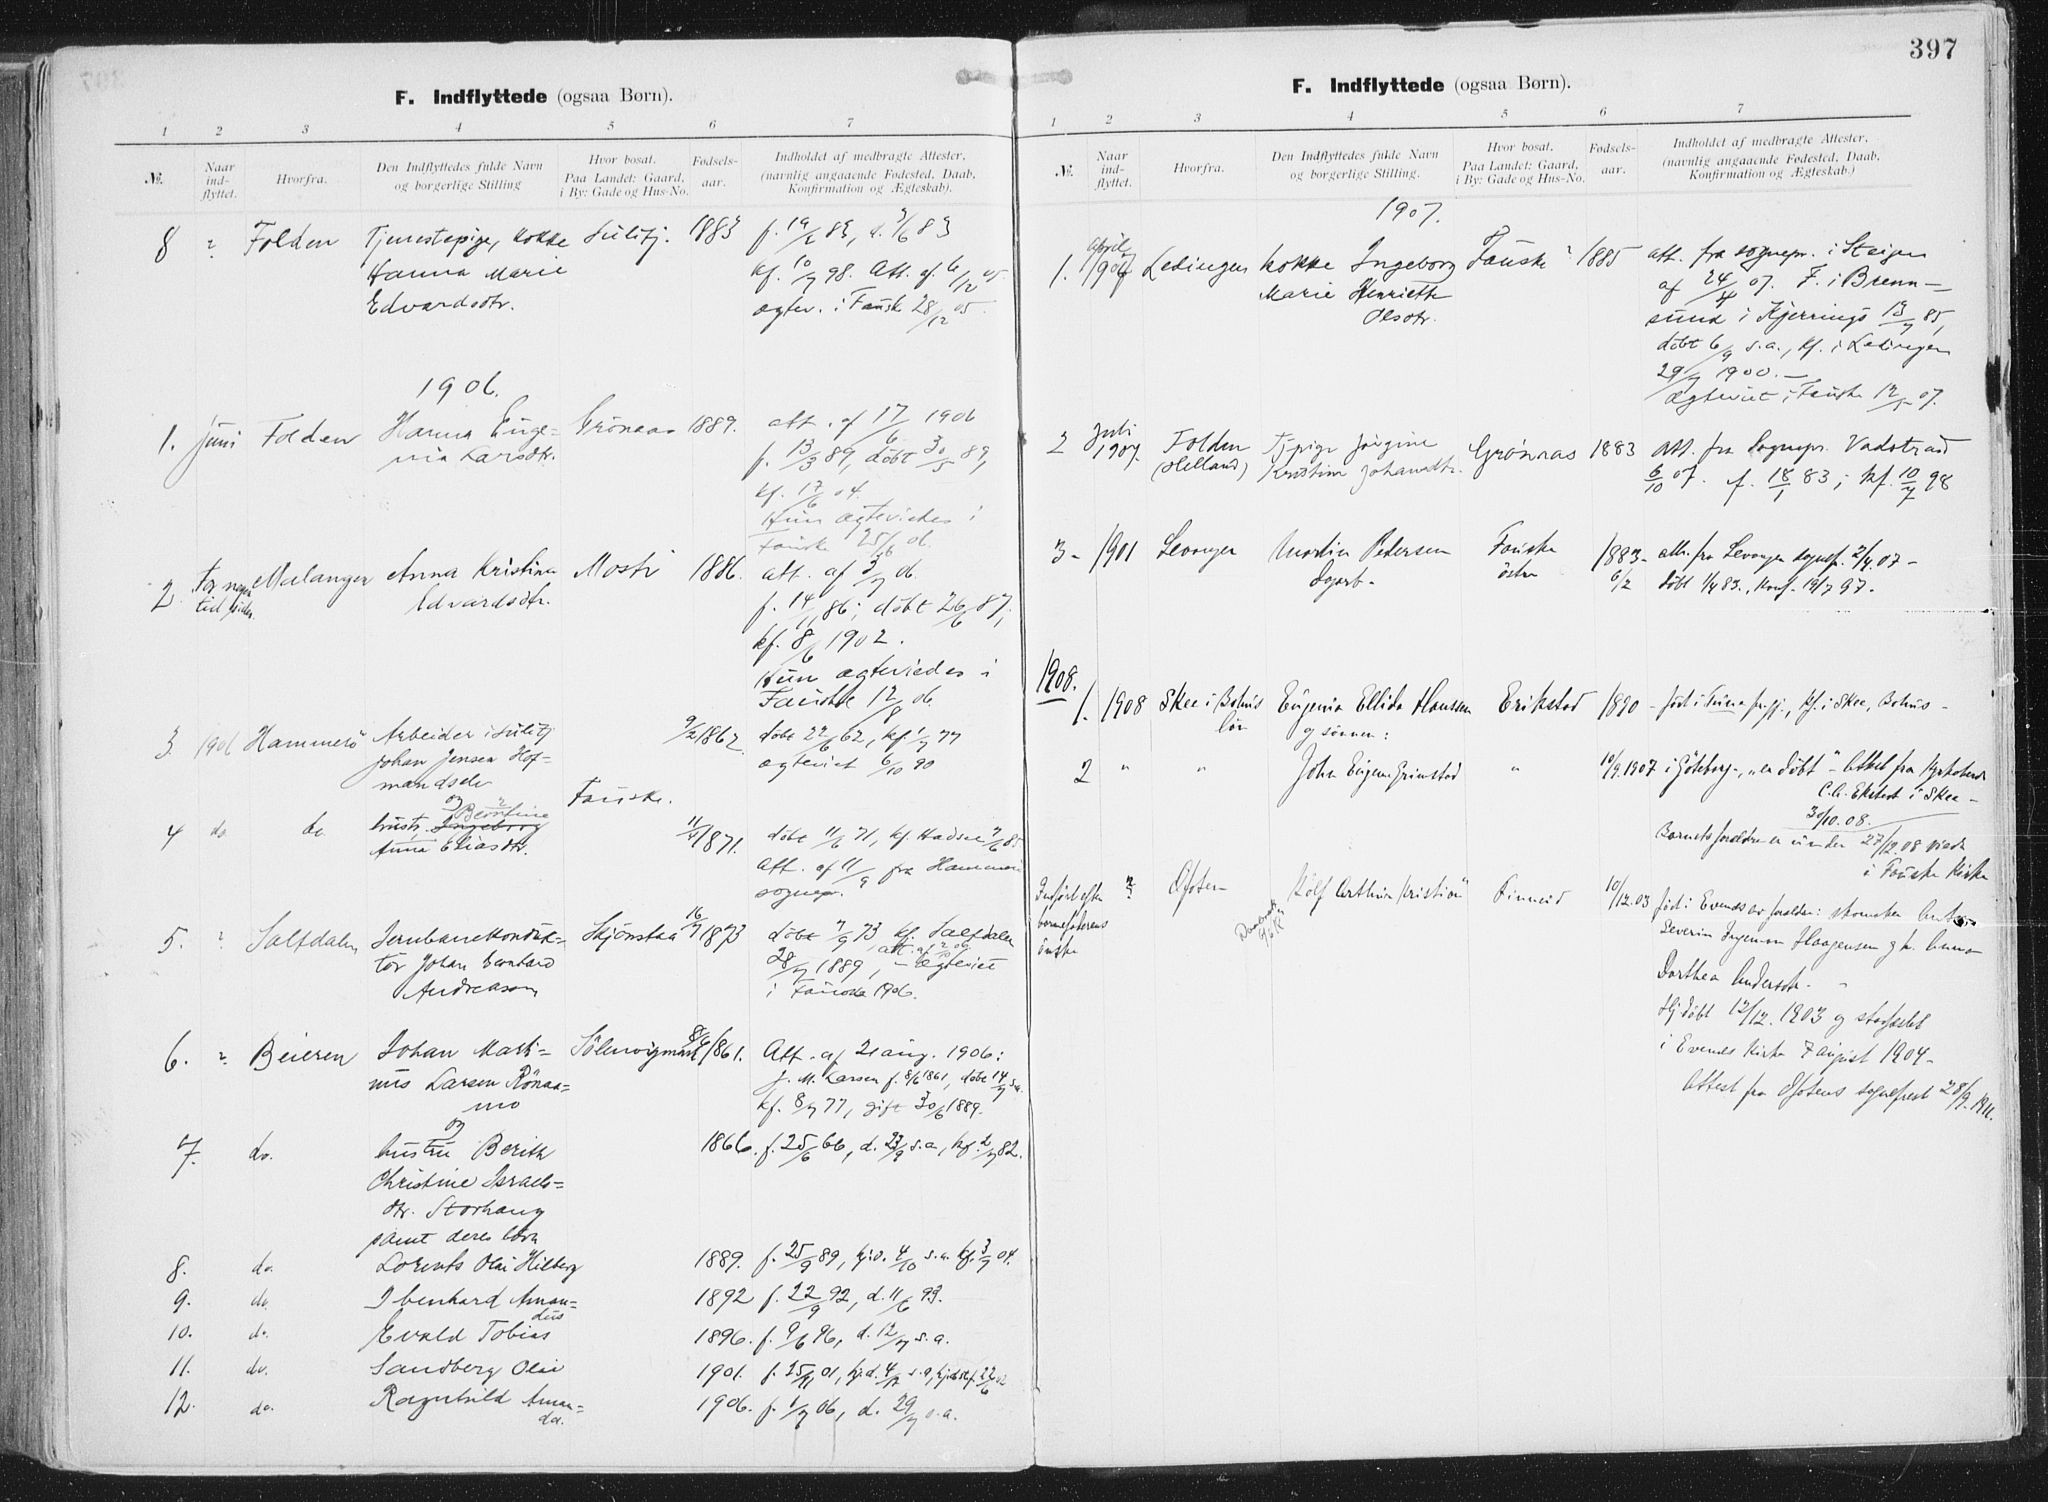 397
F. Indflyttede (ogsaa Børn).
1 2 3 4 5 6 7
№. Naar ind-flyttet. Hvorfra. Den Indflyttedes fulde Navn og borgerlige Stilling Hvor bosat. Paa Landet: Gaard, i By: Gade og Hus-No. Fødsels-aar. Indholdet af medbragte Attester, (navnlig angaaende Fødested, Daab, Konfirmation og Ægteskab).
8 " Folden Tjenestepige, kokke Sulitj. 1883 f. 19/2 83, d. 3/6 83
Hanna Marie kf. 10/7 98. Att. af 6/12 05.
Edvardsdtr. ægtev. i Fauske 28/12 05.
1906.
1. Juni Folden Hanna Euge= Grönaas 1889. att. af 17/6 1906
nia Larsdtr. f. 13/3 89, döbt 30/5 89,
kf. 17/6 04.
Hun ægteviedes i
Fauske 25/6 06.
2. for nogen tid siden Malangen Anna Kristina Mosti 1886. att. af 3/7 06.
Edvardsdtr. f. 14/11 86; döbt 26/6 87,
kf. 8/6 1902.
Hun ægteviedes i
Fauske 12/8 06
3. 1906 Hammerö Arbeider i Sulitj. 9/2 1862. döbt 22/6 62, kf. 1/7 77
Johan Jensen Hof= ægteviet 6/10 90
mandselv
og Fauske.
4 do do hustr. Ingeborg Beontine 11/4 1871. döbt 11/6 71, kf. Hadsel 7/6 85
Anna Eliasdtr. Att. af 11/9 fra Hammerö
sognepr.
5. " Saltdalen Jernbanekonduk= Skjönstaa 16/7 1873 döbt 7/9 73, kf. Saltdalen
tör Johan Bernhard 28/7 1889, – ægteviet
Andreasen i Fauske 1906.
6. " Beieren Johan Marti= 8/6 1861. Att. af 21 aug. 1906:
nus Larsen Rönaa= J. M. Larsen f. 8/6 1861, döbt 14/7 s.a.
mo kf. 8/7 77, gift 30/6 1889.
og
7. do. hustru Berith 1866. f. 25/6 66, d. 23/9 s.a, kf. 2/7 82.
Christine Israels=
dtr. Storhaug
samt deres börn
8. do. Lorents Olai Hilberg 1889. f. 25/9 89, hj.d. 4/10 s.a. kf. 3/7 04.
9. do. Ibenhard Aman= 1892 f. 22/9 92, d. 11/6 93.
dus
10. do. Evald Tobias 1896. f. 9/6 96, d. 12/7 s.a.
11. do. Sandberg Olai 1901. f. 25/11 01, hj.d. 4/12 s.a, hj.d. st.f. 22/6 02
12. do. Ragnhild Aman= 1906. f. 1/7 06, d. 29/7 s.a.
da.
F. Indflyttede (ogsaa Børn).
1 2 3 4 5 6 7
№. Naar ind-flyttet. Hvorfra. Den Indflyttedes fulde Navn og borgerlige Stilling. Hvor bosat. Paa Landet: Gaard, i By: Gade og Hus-No. Fødsels-aar. Indholdet af medbragte Attester, (navnlig angaaende Fødested, Daab, Konfirmation og Ægteskab.)
1907.
1. April 1907 Lödingen kokke Ingeborg Fauske 1885 att. fra sognepr. i Steigen
Marie Henriette af 24/4 07. F. i Brenn–
Olsdtr. sund i Kjerringö 13/7 85,
döbt 6/9 s.a., kf. i Lödingen
29/7 1900. –
ægteviet i Fauske 12/5 07.
2 Juli 1907. Folden (Helland) Tj.pige Jörgine Grönnas 1883 Att. fra Sognepr. Vadstrad
Kristine Johansdtr. 6/10 07. f. 18/1 83; kf. 10/7 98
3- 1901 Levanger Martin Petersen Fauske östre 1883- 6/2 att. fra Levanger sognepr. 2/4.07 –
döbt 1/4 83., konf. 19/7 97-
1908.
1. 1908 Skee i Bohus län Eugenia Ellida Hanssen Erikstad 1890 – född i Tune pr.gj., kf. i Skee, Bohus –
og sönnen:
2 " " John Eugen Grimstad " 10/9.1907 i Göteborg-, "er döbt" – Attest fra kyrkoherde
C. A. Ekstedt i Skee –
30/10.08.
Barnets foreldre er under 27/12.08 viede
i Fauske Kirke
Indfört efter barnefaderens önske ? Ofoten Rolf Arthur Kristian Finneid 10/12.03 född i Evenes av foreldre: skomaker Anton
Severin Ingeman Haagensen og h. Anna
Dorthea Andersdtr. –
Hj.döbt 12/12.1903 og stadfæstet
i Evenes Kirke 7 august 1904 –
Attest fra Ofotens sogneprest 28/9.1911.